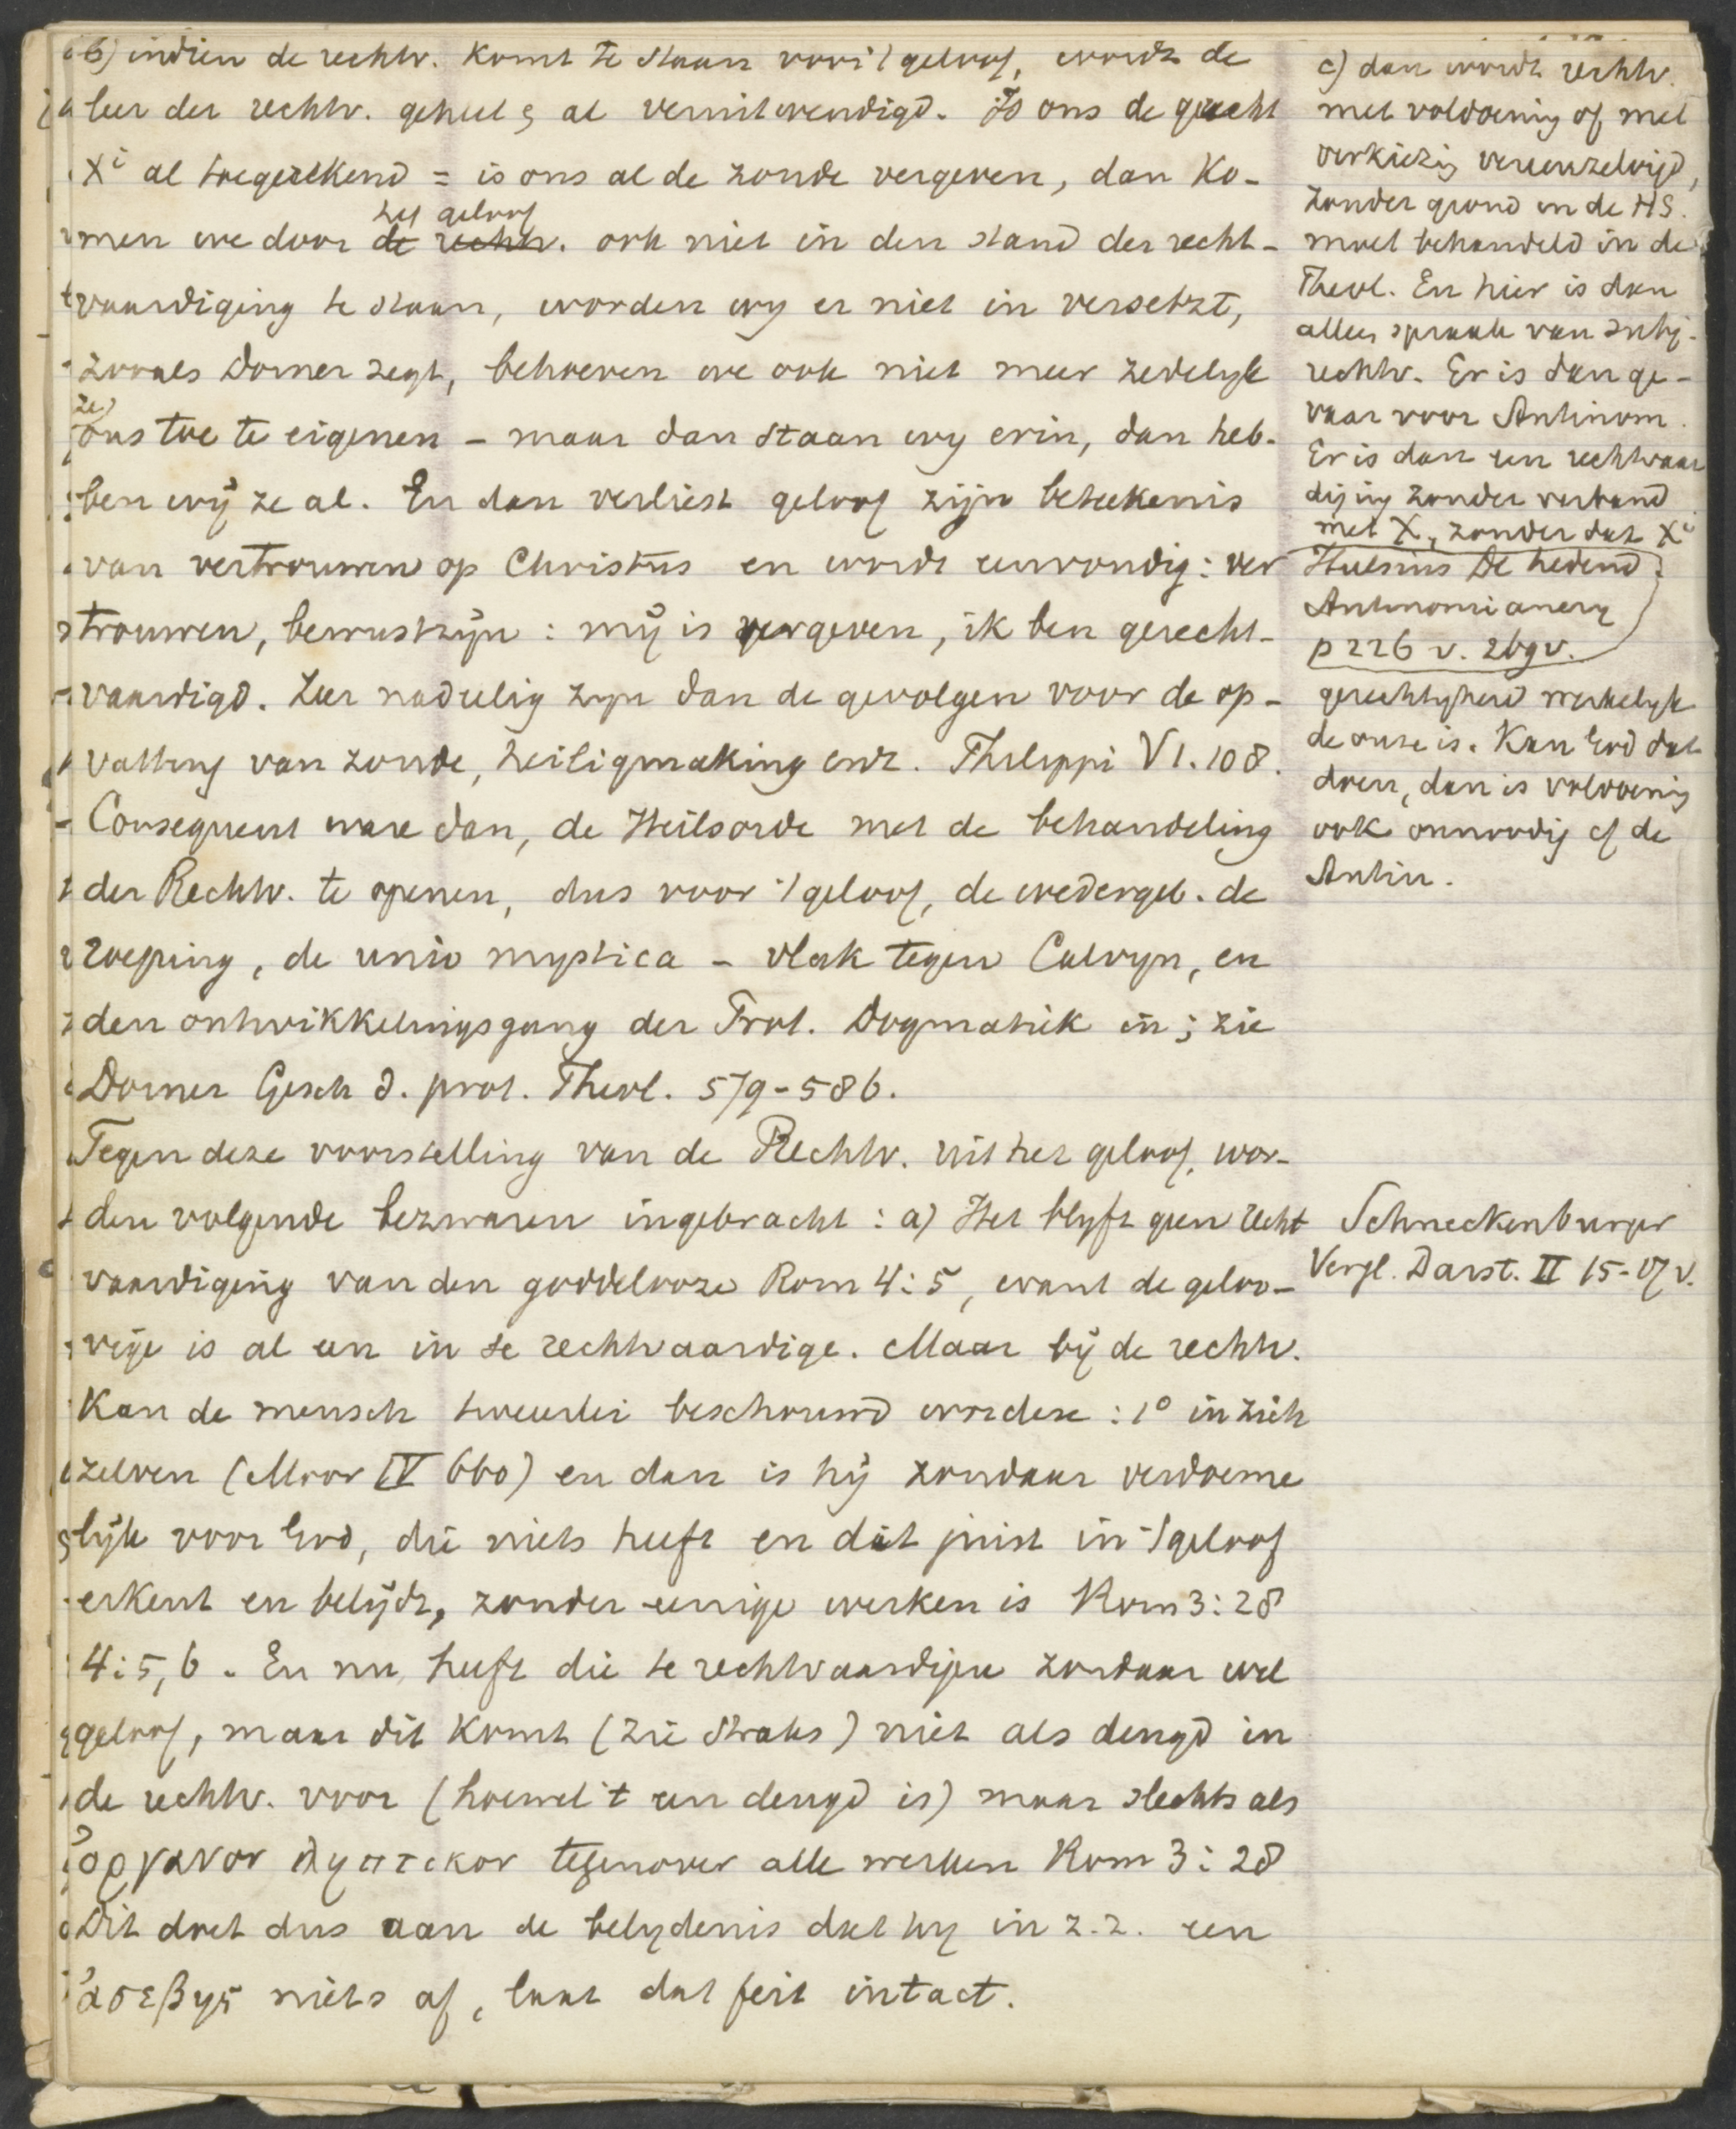 b) indien de rechtv. komt te staan voor 't geloof, wordt de
leer der rechtv. geheel & al veruitwendigd. Is ons de gerecht
Xⁱ al toegerekend = is ons al de zonde vergeven, dan ko-
men we door de rechtv. het geloof ook niet in den stand der recht-
vaardiging te staan, worden wy er niet in verzetzt,
zooals Dorner zegt, behoeven we ook niet meer zedelyk
ze ons toe te eigenen – maar dan staan wy erin, dan heb-
ben wij ze al. En dan verliest geloof zijn beteekenis
van vertrouwen op Christus en wordt eenvoudig: ver
trouwen, bewustzijn: mij is vergeven, ik ben gerecht-
vaardigd. Zeer nadeelig zyn dan de gevolgen voor de op-
vatting van zonde, heiligmaking enz. Philippi VI. 108.
Consequent ware dan, de Heilsorde met de behandeling
der Rechtv. te openen, dus voor 't geloof, de wedergeb. de
roeping, de unio mystica – vlak tegen Calvyn, en
den ontwikkelingsgang der Prot. Dogmatiek in; zie
Dorner Gesch d. prot. Theol. 579-586.
Tegen deze voorstelling van de Rechtv. uit het geloof, wor-
den volgende bezwaren ingebracht: a) Het blyft geen recht
vaardiging van den goddelooze Rom 4:5, want de geloo-
vige is al een in se rechtvaardige. Maar bij de rechtv.
kan de mensch tweeerlei beschouwd worden: 1° in zich
zelven (Moor IV 660) en dan is hij zondaar verdoeme
lijk voor God, die niets heeft en dat juist in 't geloof
erkent en belijdt, zonder eenige werken is Rom 3:28
4:5,6. En nu heeft die te rechtvaardigen zondaar wel
geloof, maar dit komt (zie straks) niet als deugd in
de rechtv. voor (hoewel 't een deugd is) maar slechts als
ὀργανον ληπτικον tegenover alle werken Rom 3:28
Dit doet dus aan de belydenis dat hy in z.z. een
ἀσεβης niets af, laat dat feit intact.
c) dan wordt rechtv.
met voldoening of met
verkiezing vereenzelvigd,
zonder grond in de HS.
moet behandeld in de
Theol. En hier is dan
alleen spraak van subj.
rechtv. Er is dan ge-
vaar voor Antinom.
Er is dan een rechtvaar
diging zonder verband
met X, zonder dat Xⁱ
Hulsius De hedend.
Antinomianery
p 226 v. 269v.
gerechtigheid werkelyk
de onze is. Kan God dat
doen, dan is voldoening
ook onnoodig cf de
Antin.
Schneckenburger
Vergl. Darst. II 15-17 v.